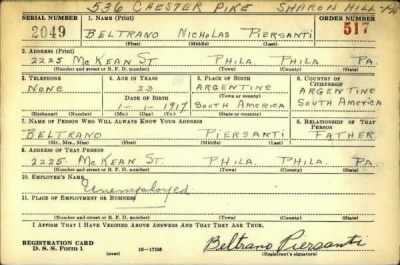 536 CHESTER PIKE SHARON HILL-PA
SERIAL NUMBER 1. NAME (Print) ORDER NUMBER
2049 BELTRANO NICHOLAS PIERSANTI 517
(First) (Middle) (Last)
2. ADDRESS (Print)
2225 McKEAN ST. PHILA. PHILA PA.
(Number and street or R. F. D. number) (Town) (County) (State)
3. TELEPHONE 4. AGE IN YEARS 5. PLACE OF BIRTH 6. COUNTRY OF CITIZENSHIP
NONE 23 ARGENTINE ARGENTINE
DATE OF BIRTH (Town or county)
1-1-1917 SOUTH AMERICA SOUTH AMERICA
(Exchange) (Number) (Mo.) (Day) (Yr.) (State or country)
7. NAME OF PERSON WHO WILL ALWAYS KNOW YOUR ADDRESS 8. RELATIONSHIP OF THAT PERSON
BELTRANO PIERSANTI FATHER
(Mr., Mrs., Miss) (First) (Middle) (Last)
9. ADDRESS OF THAT PERSON
2225 McKEAN ST. PHILA. PHILA. PA.
(Number and street or R. F. D. number) (Town) (County) (State)
10. EMPLOYER'S NAME
Unemployed
11. PLACE OF EMPLOYMENT OR BUSINESS
(Number and street or R. F. D. number) (Town) (County) (State)
I AFFIRM THAT I HAVE VERIFIED ABOVE ANSWERS AND THAT THEY ARE TRUE.
REGISTRATION CARD
D. S. S. Form 1 16-17105 Beltrano Piersanti
(Registrant's signature)